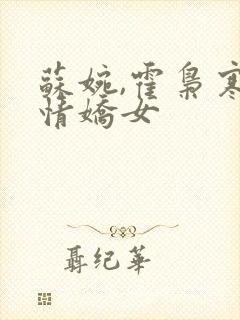 蘇婉,霍梟寒
情嬌女
聶紀華